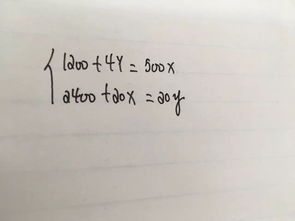 1200 + 4Y = 500x
2400 + 20x = 20y